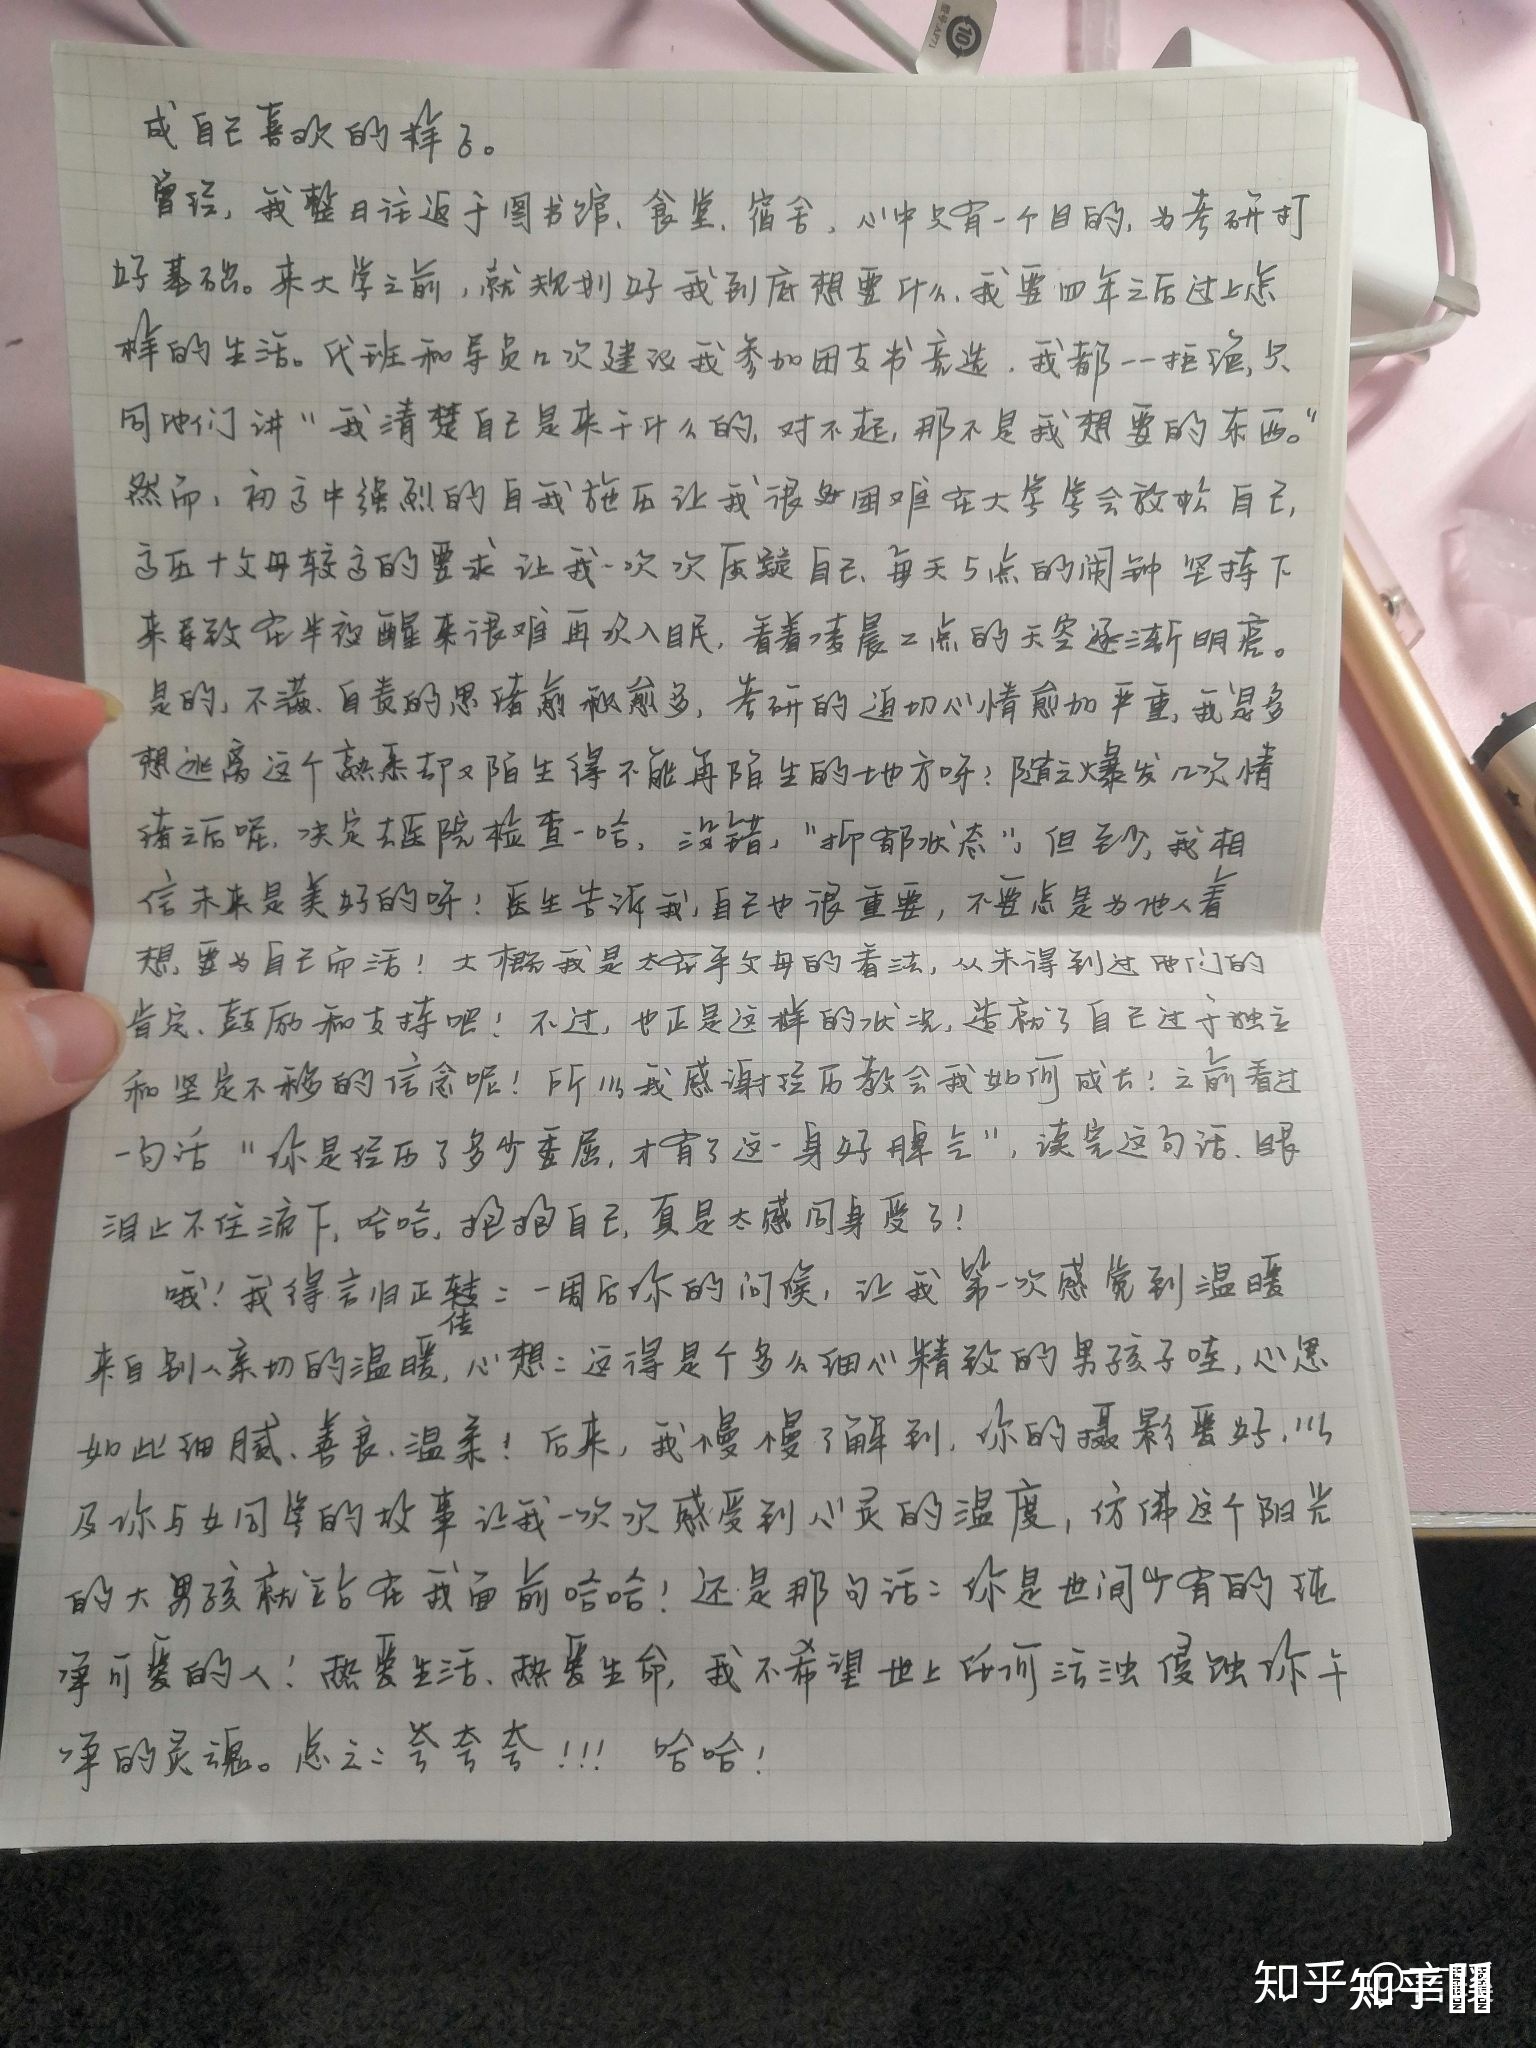 成自己喜欢的样子。
曾经，我整日往返于图书馆、食堂、宿舍，心中只有一个目的，为考研打
好基础。来大学之前，就规划好我到底想要什么、我要四年之后过上怎
样的生活。代班和导员几次建议我参加团支书竞选，我都一一拒绝，只
同他们讲“我清楚自己是来干什么的，对不起，那不是我想要的东西。”
然而，初高中强烈的自我施压让我很困难在大学学会放松自己，
高压+父母较高的要求让我一次次质疑自己、每天5点的闹钟坚持下
来导致在半夜醒来很难再次入眠，看着凌晨2点的天空逐渐明亮。
是的，不满、自责的思绪愈积愈多，考研的迫切心情愈加严重，我是多
想逃离这个熟悉却又陌生得不能再陌生的地方呀！随之爆发几次情
绪之后呢，决定去医院检查一哈，没错，“抑郁状态”，但至少，我相
信未来是美好的呀！医生告诉我，自己也很重要，不要总是为他人着
想，要为自己而活！大概我是太在乎父母的看法，从未得到过他们的
肯定、鼓励和支持吧！不过，也正是这样的状况，造就了自己过于独立
和坚定不移的信念呢！所以我感谢经历教会我如何成长！之前看过
一句话“你是经历了多少委屈，才有了这一身好脾气”，读完这句话、眼
泪止不住流下，哈哈，抱抱自己，真是太感同身受了！
哦！我得言归正转：一周后你的问候，让我第一次感觉到温暖
传
来自别人亲切的温暖，心想：这得是个多么细心精致的男孩子哇，心思
如此细腻、善良、温柔！后来，我慢慢了解到，你的摄影爱好，以
及你与女同学的故事让我一次次感受到心灵的温度，仿佛这个阳光
的大男孩就站在我面前哈哈！还是那句话：你是世间少有的纯
净可爱的人！热爱生活、热爱生命，我不希望世上任何污浊侵蚀你干
净的灵魂。总之：夸夸夸！！！ 哈哈！
知乎
知乎